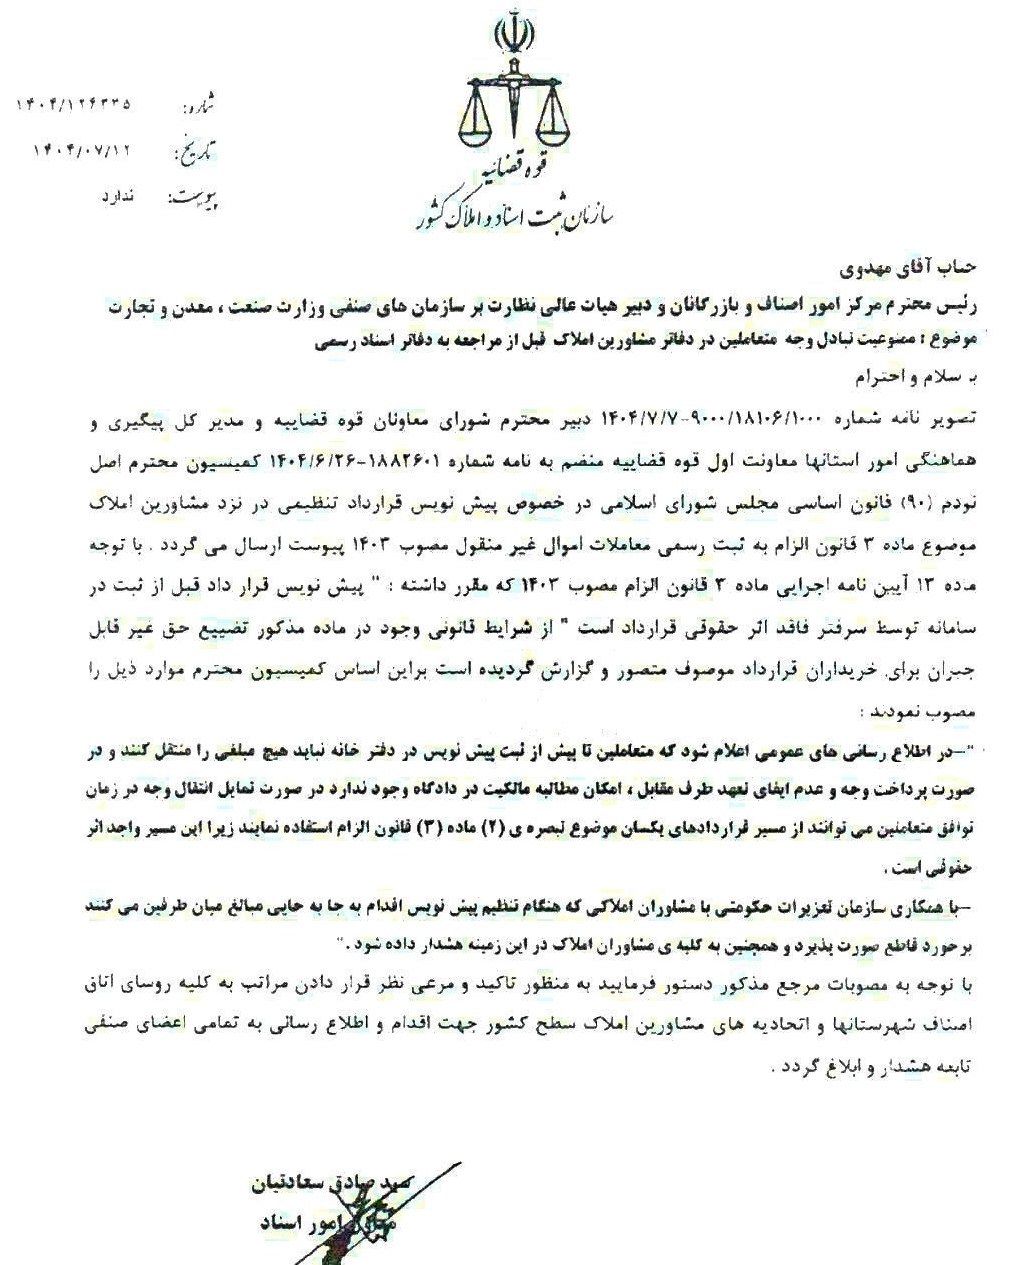 قوه قضائیه
سازمان ثبت اسناد و املاک کشور
شماره: ۱۴۰۴/۱۲۴۳۳۵
تاریخ: ۱۴۰۴/۰۷/۱۲
پیوست: ندارد
جناب آقای مهدوی
رئیس محترم مرکز امور اصناف و بازرگانان و دبیر هیات عالی نظارت بر سازمان های صنفی وزارت صنعت ، معدن و تجارت
موضوع : ممنوعیت تبادل وجه متعاملین در دفاتر مشاورین املاک قبل از مراجعه به دفاتر اسناد رسمی
با سلام و احترام
تصویر نامه شماره ۹۰۰۰/۱۸۱۰۶/۱۰۰۰-۱۴۰۴/۷/۷ دبیر محترم شورای معاونان قوه قضاییه و مدیر کل پیگیری و
هماهنگی امور استانها معاونت اول قوه قضاییه منضم به نامه شماره ۱۸۸۲۶۰۱-۱۴۰۴/۶/۲۶ کمیسیون محترم اصل
نودم (۹۰) قانون اساسی مجلس شورای اسلامی در خصوص پیش نویس قرارداد تنظیمی در نزد مشاورین املاک
موضوع ماده ۳ قانون الزام به ثبت رسمی معاملات اموال غیر منقول مصوب ۱۴۰۳ پیوست ارسال می گردد . با توجه
ماده ۱۳ آیین نامه اجرایی ماده ۳ قانون الزام مصوب ۱۴۰۳ که مقرر داشته : " پیش نویس قرار داد قبل از ثبت در
سامانه توسط سرفتر فاقد اثر حقوقی قرارداد است " از شرایط قانونی وجود در ماده مذکور تضییع حق غیر قابل
جبران برای خریداران قرارداد موصوف متصور و گزارش گردیده است براین اساس کمیسیون محترم موارد ذیل را
مصوب نمودند :
"-در اطلاع رسانی های عمومی اعلام شود که متعاملین تا پیش از ثبت پیش نویس در دفتر خانه نباید هیچ مبلغی را منتقل کنند و در
صورت پرداخت وجه و عدم ایفای تعهد طرف مقابل ، امکان مطالبه مالکیت در دادگاه وجود ندارد در صورت تمایل انتقال وجه در زمان
توافق متعاملین می توانند از مسیر قراردادهای یکسان موضوع تبصره ی (۲) ماده (۳) قانون الزام استفاده نمایند زیرا این مسیر واجد اثر
حقوقی است .
-با همکاری سازمان تعزیرات حکومتی با مشاوران املاکی که هنگام تنظیم پیش نویس اقدام به جا به جایی مبالغ میان طرفین می کنند
برخورد قاطع صورت پذیرد و همچنین به کلیه ی مشاوران املاک در این زمینه هشدار داده شود ."
با توجه به مصوبات مرجع مذکور دستور فرمایید به منظور تاکید و مرعی نظر قرار دادن مراتب به کلیه روسای اتاق
اصناف شهرستانها و اتحادیه های مشاورین املاک سطح کشور جهت اقدام و اطلاع رسانی به تمامی اعضای صنفی
تابعه هشدار و ابلاغ گردد .
سید صادق سعادتیان
معاون امور اسناد